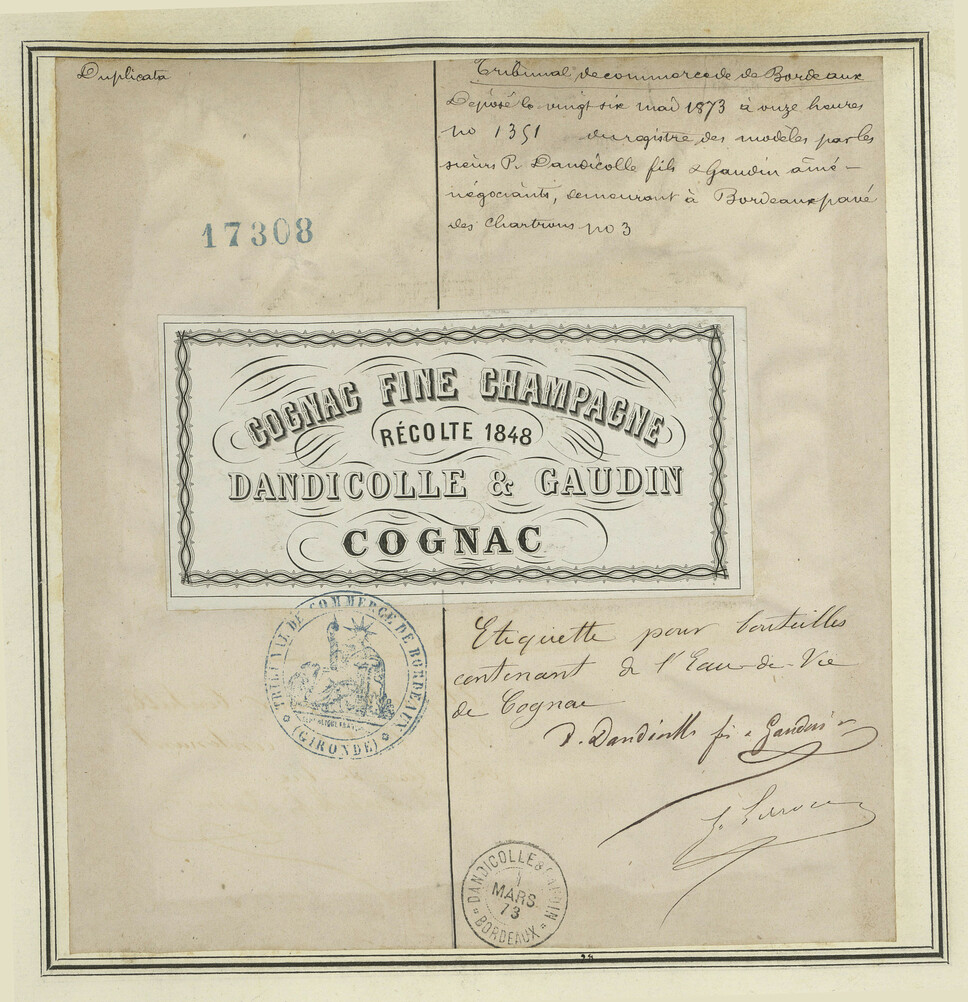 Duplicata
Tribunal de commerce de Bordeaux
Déposé le vingt six mai 1873 à onze heures
no 1351 du registre des modèles par les
sieurs P. Dandicolle fils & Gaudin aîné
négociants, demeurant à Bordeaux pavé
des Chartrons no 3
17308
COGNAC FINE CHAMPAGNE
RÉCOLTE 1848
DANDICOLLE & GAUDIN
COGNAC
TRIBUNAL DE COMMERCE DE BORDEAUX
(GIRONDE)
Etiquette pour bouteilles
contenant de l'Eau-de-Vie
de Cognac
P. Dandicolle fs & Gaudin
DANDICOLLE & GAUDIN
MARS
73
BORDEAUX